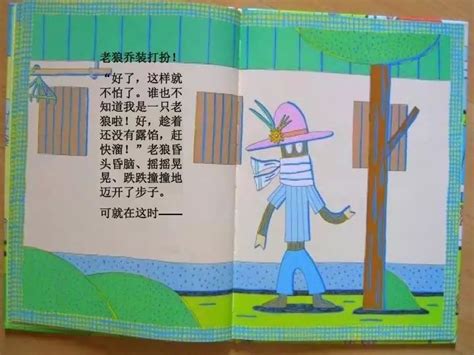 老狼乔装打扮！
“好了，这样就
不怕了。谁也不
知道我是一只老
狼啦！好，趁着
还没有露馅，赶
快溜！”老狼昏
头昏脑、摇摇晃
晃、跌跌撞撞地
迈开了步子。
可就在这时——